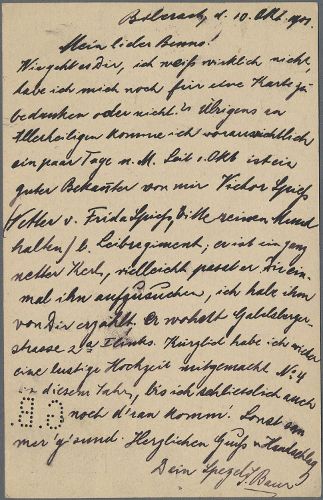 Biberach, d. 10. Okt. 1901.
Mein lieber Benno!
Wie geht es Dir, ich weiß wirklich nicht,
habe ich mich noch für eine Karte zu
bedanken oder nicht. Übrigens an
Allerheiligen komme ich voraussichtlich
ein paar Tage n. M. Seit 1. Okt ist ein
guter Bekannter von mir Victor Spieß
(Vetter v. Frida Spieß, bitte reinen Mund
halten) b. Leibregiment; er ist ein ganz
netter Kerl, vielleicht passt es Dir ein-
mal ihn aufzusuchen, ich habe ihm
von Dir erzählt. Er wohnt Gabelsberger-
strasse 2a I links. Kürzlich habe ich wieder
eine lustige Hochzeit mitgemacht No. 4
in diesem Jahr, bis ich schliesslich auch
noch d'ran komm'. Sonst
mer g'sund. Herzlichen Gruß u. Handschlag
Dein Baur